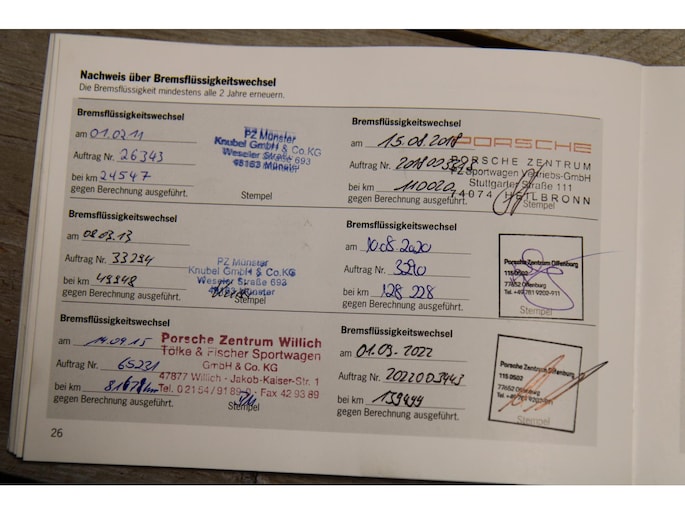 Nachweis über Bremsflüssigkeitswechsel
Die Bremsflüssigkeit mindestens alle 2 Jahre erneuern.
Bremsflüssigkeitswechsel
am 01.02.11
Auftrag Nr. 26343
bei km 24547
gegen Berechnung ausgeführt.
PZ Münster
Knubel GmbH & Co.KG
Weseler Straße 693
48163 Münster
Stempel
Bremsflüssigkeitswechsel
am 15.08.2018
Auftrag Nr.
bei km 110020
gegen Berechnung ausgeführt.
PORSCHE
PORSCHE ZENTRUM
PZ Sportwagen Vertriebs-GmbH
Stuttgarter Straße 111
74074 HEILBRONN
Stempel
Bremsflüssigkeitswechsel
am 08.03.13
Auftrag Nr. 33294
bei km 49948
gegen Berechnung ausgeführt.
PZ Münster
Knubel GmbH & Co.KG
Weseler Straße 693
48163 Münster
Stempel
Bremsflüssigkeitswechsel
am 10.08.2020
Auftrag Nr. 3290
bei km 128 228
gegen Berechnung ausgeführt.
Porsche Zentrum Offenburg
115 0503
77652 Offenburg
Tel. +49 781 9202-911
Stempel
Bremsflüssigkeitswechsel
am 14.04.15
Auftrag Nr. 65231
bei km
gegen Berechnung ausgeführt.
Porsche Zentrum Willich
Tölke & Fischer Sportwagen
GmbH & Co. KG
47877 Willich - Jakob-Kaiser-Str. 1
Tel. 0 21 54 / 91 89 0 - Fax 42 93 89
Stempel
Bremsflüssigkeitswechsel
am 01.09.2022
Auftrag Nr.
bei km 139999
gegen Berechnung ausgeführt.
Porsche Zentrum Offenburg
115 0503
77652 Offenburg
Tel. +49 781 9202-911
Stempel
26